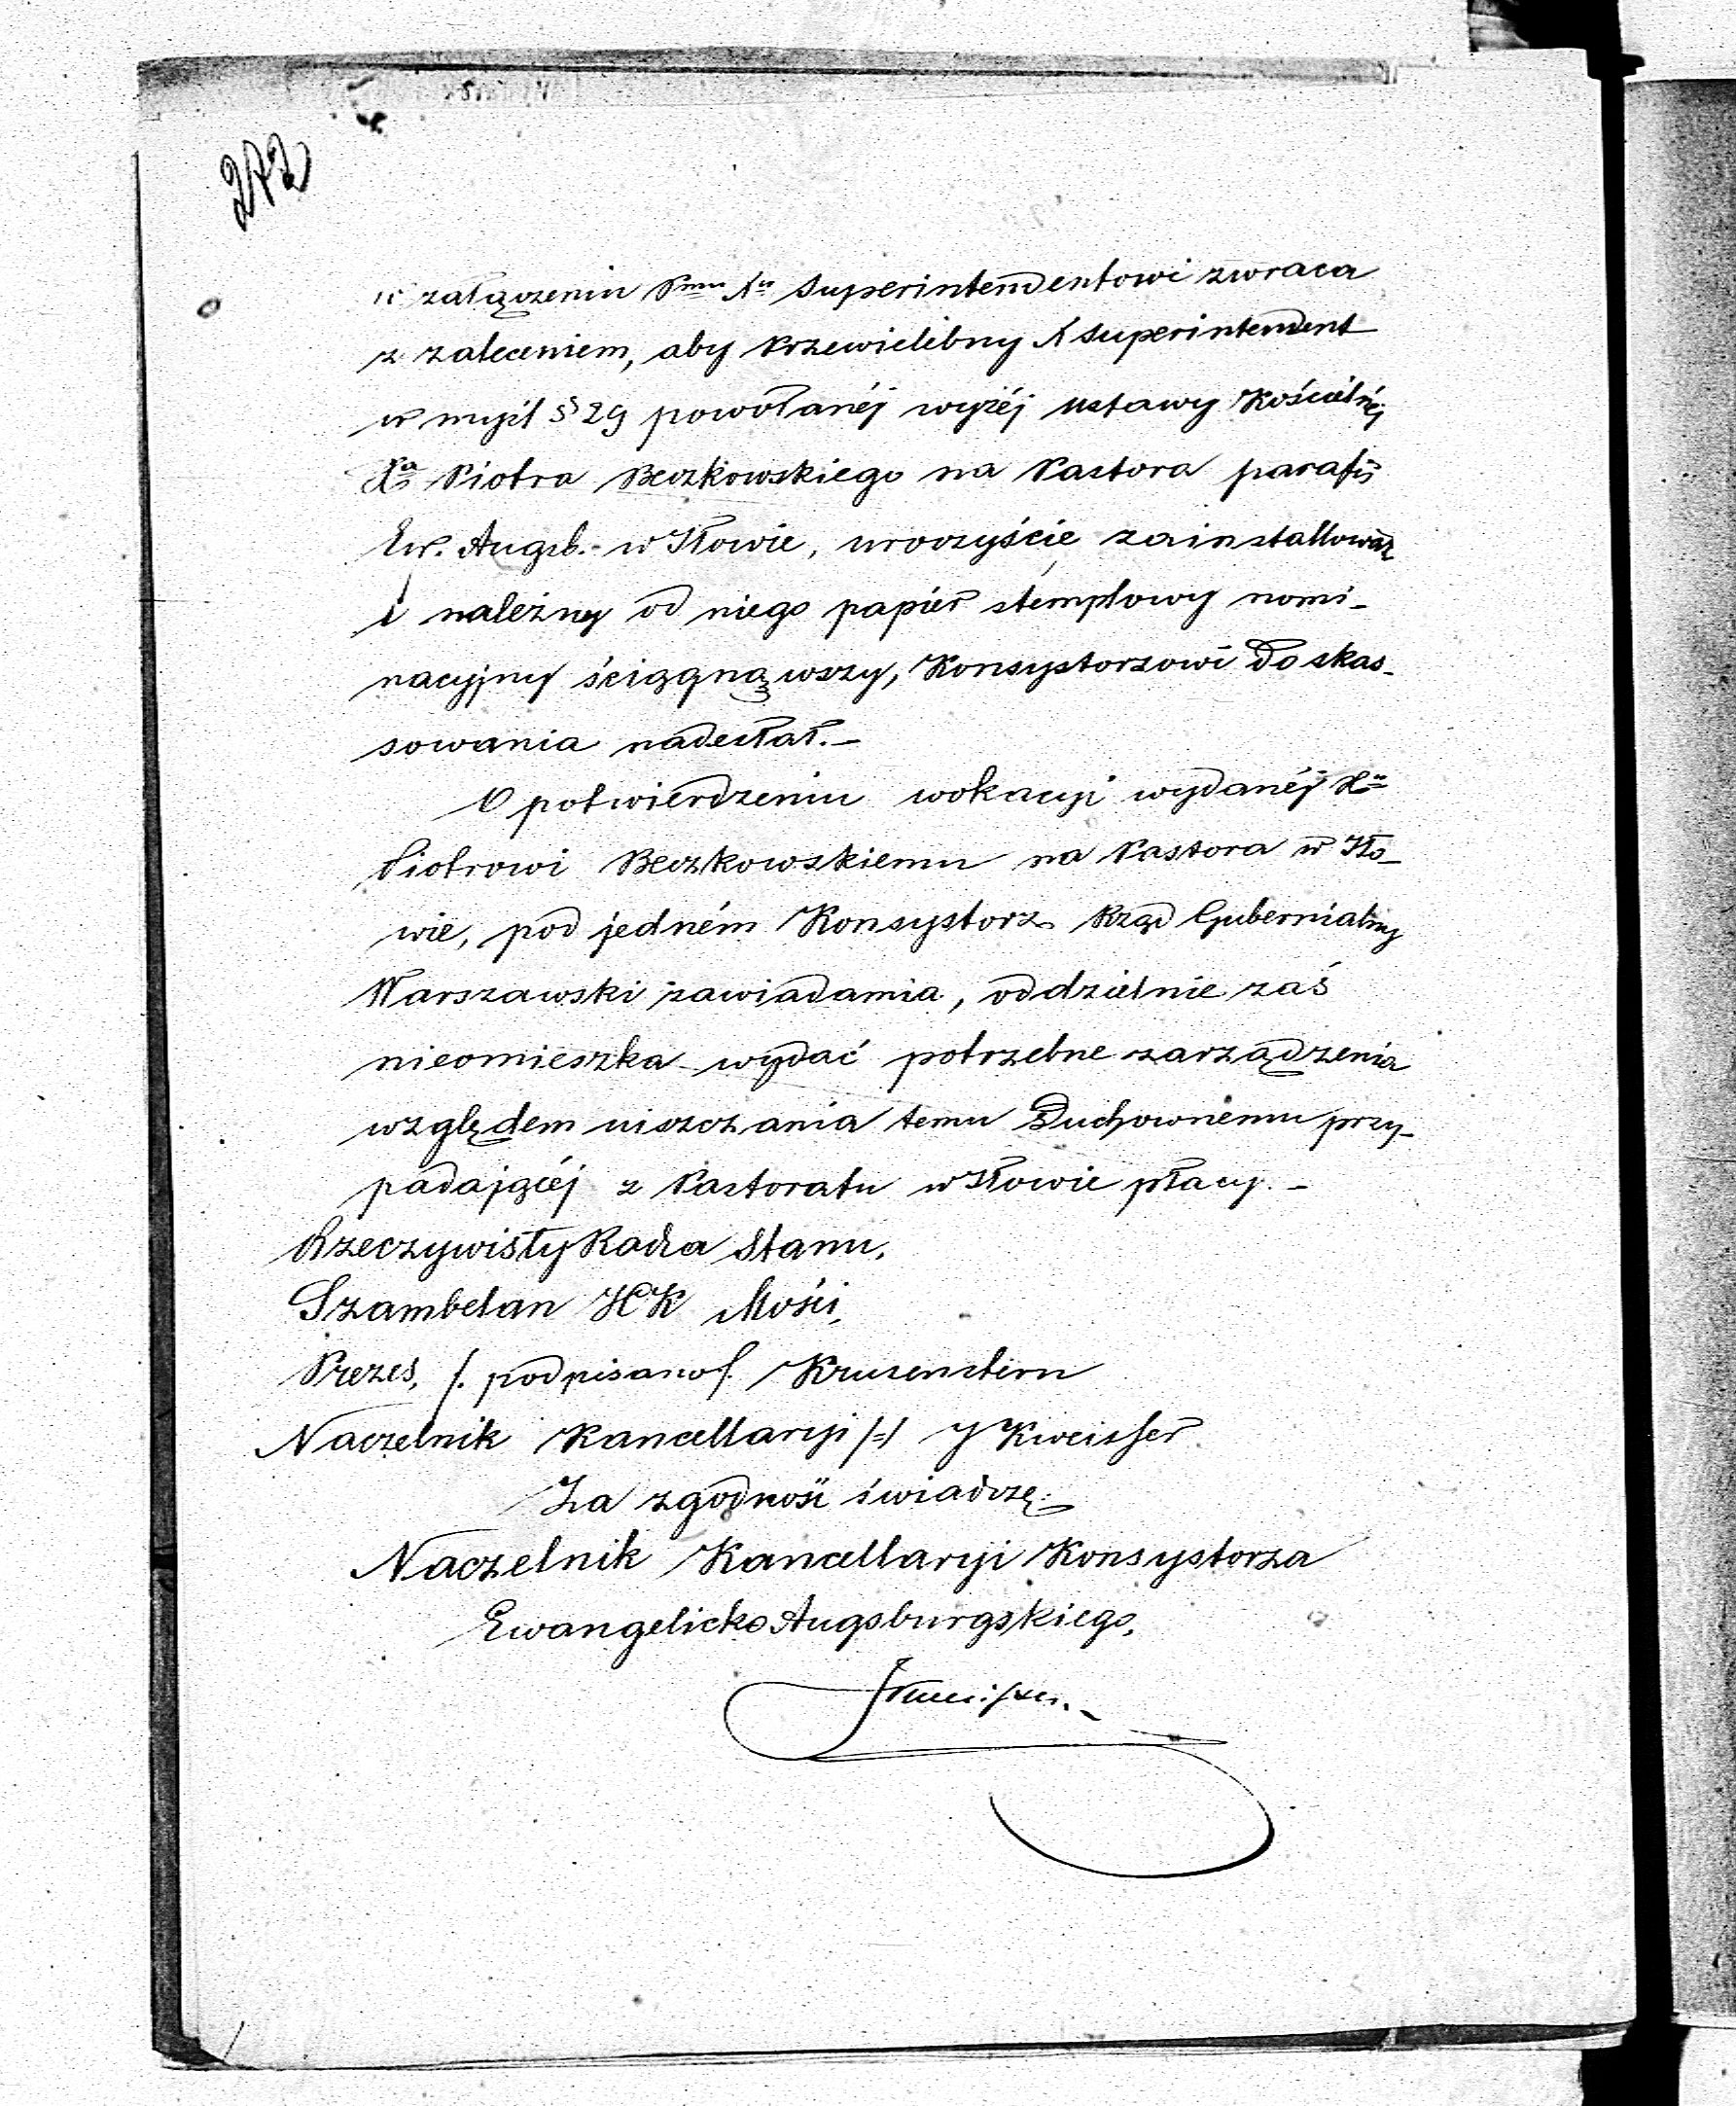 272
w załączeniu Pmu Xu Superintendentowi zwraca
z zaleceniem, aby Przewielebny X Superintendent
w myśl § 29 powołanéj wyżéj ustawy Kościelnéj
Xa Piotra Beczkowskiego na Pastora parafii
Ew. Augsb. w Iłowie, uroczyście zainstallował
i należny od niego papiér stemplowy nomi-
nacyjny ściągnąwszy, Konsystorzowi do skas-
sowania nadesłał.-
O potwierdzeniu wokacyi wydanéj Xu
Piotrowi Beczkowskiemu na Pastora w Iło-
wie, pod jedném Konsystorz Rząd Gubernialny
Warszawski zawiadamia, oddzielnie zaś
nieomieszka wydać potrzebne zarządzenia
względem uiszczania temu Duchownemu przy-
padającéj z Pastoratu w Iłowie płacy. -
Rzeczywisty Radca Stanu,
Szambelan JCK Mości,
Prezes, /. podpisano /. Krusenstern
Naczelnik Kancellaryi /=/ J Kweisser
Za zgodność świadczę:
Naczelnik Kancellaryi Konsystorza
Ewangelicko Augsburgskiego,